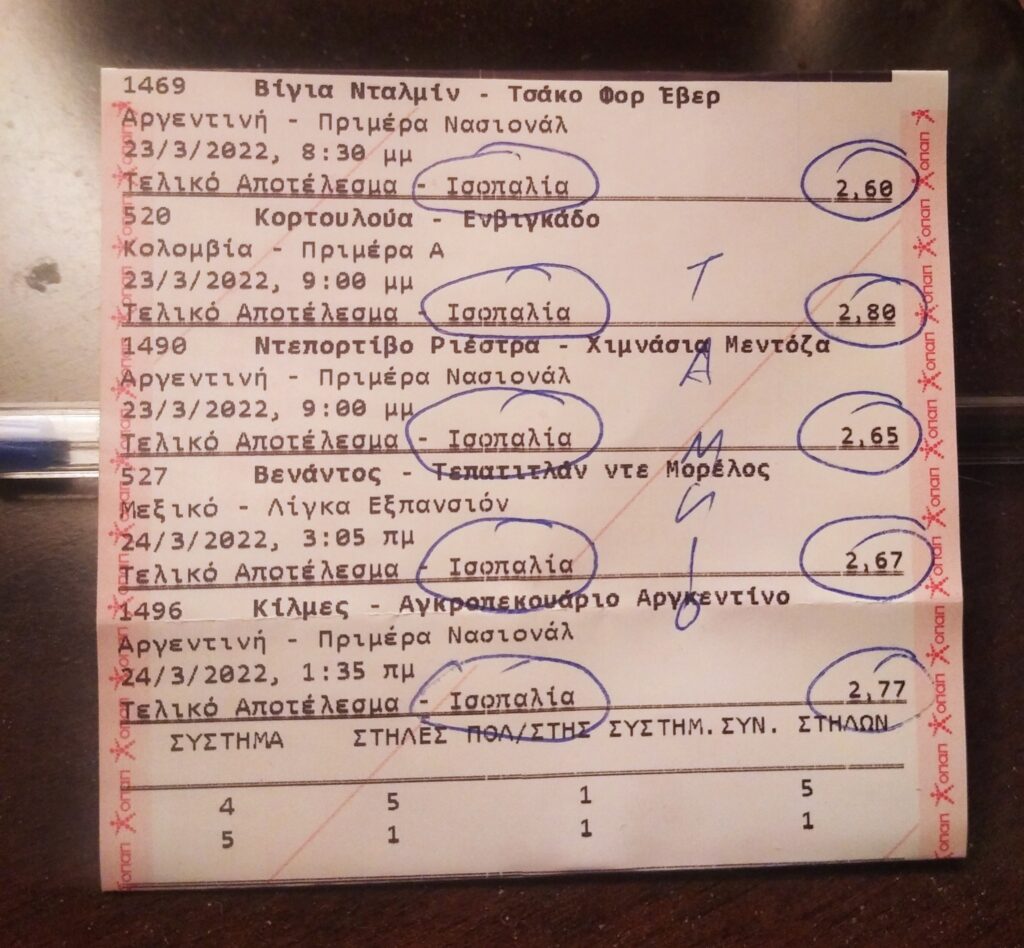 1469 Βίγια Νταλμίν - Τσάκο Φορ Έβερ
Αργεντινή - Πριμέρα Νασιονάλ
23/3/2022, 8:30 μμ
Τελικό Αποτέλεσμα - Ισοπαλία 2,60
520 Κορτουλούα - Ενβιγκάδο
Κολομβία - Πριμέρα Α
23/3/2022, 9:00 μμ
Τελικό Αποτέλεσμα - Ισοπαλία 2,80
1490 Ντεπορτίβο Ριέστρα - Χιμνάσια Μεντόζα
Αργεντινή - Πριμέρα Νασιονάλ
23/3/2022, 9:00 μμ
Τελικό Αποτέλεσμα - Ισοπαλία 2,65
527 Βενάντος - Τεπατιτλάν ντε Μορέλος
Μεξικό - Λίγκα Εξπανσιόν
24/3/2022, 3:05 πμ
Τελικό Αποτέλεσμα - Ισοπαλία 2,67
1496 Κίλμες - Αγκροπεκουάριο Αργκεντίνο
Αργεντινή - Πριμέρα Νασιονάλ
24/3/2022, 1:35 πμ
Τελικό Αποτέλεσμα - Ισοπαλία 2,77
ΣΥΣΤΗΜΑ ΣΤΗΛΕΣ ΠΟΛ/ΣΤΗΣ ΣΥΣΤΗΜ. ΣΥΝ. ΣΤΗΛΩΝ
4 5 1 5
5 1 1 1
Τ
Α
Μ
Ι
Ο
οπαπ